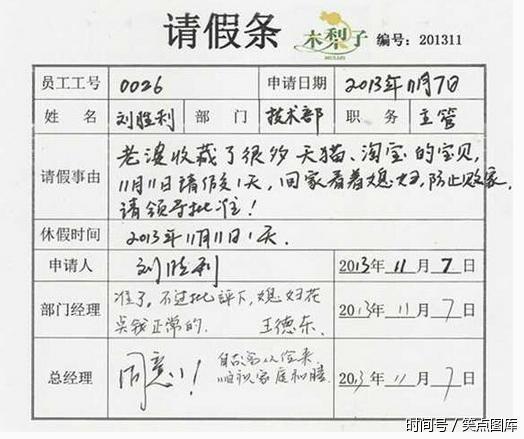 请假条
木梨子
MULIZI
编号：201311
员工工号 0026 申请日期 2013年11月7日
姓名 刘胜利 部门 技术部 职务 主管
请假事由
老婆收藏了很多天猫、淘宝的宝贝，
11月11日请假1天，回家看着媳妇，防止败家。
请领导批准！
休假时间 2013年11月11日1天.
申请人 刘胜利 2013年11月7日
部门经理
准了，不过批评下，媳妇花
钱正常的. 王德东.
2013年11月7日
总经理
同意！
家庭和睦
2013年11月7日
时间号/笑点图库